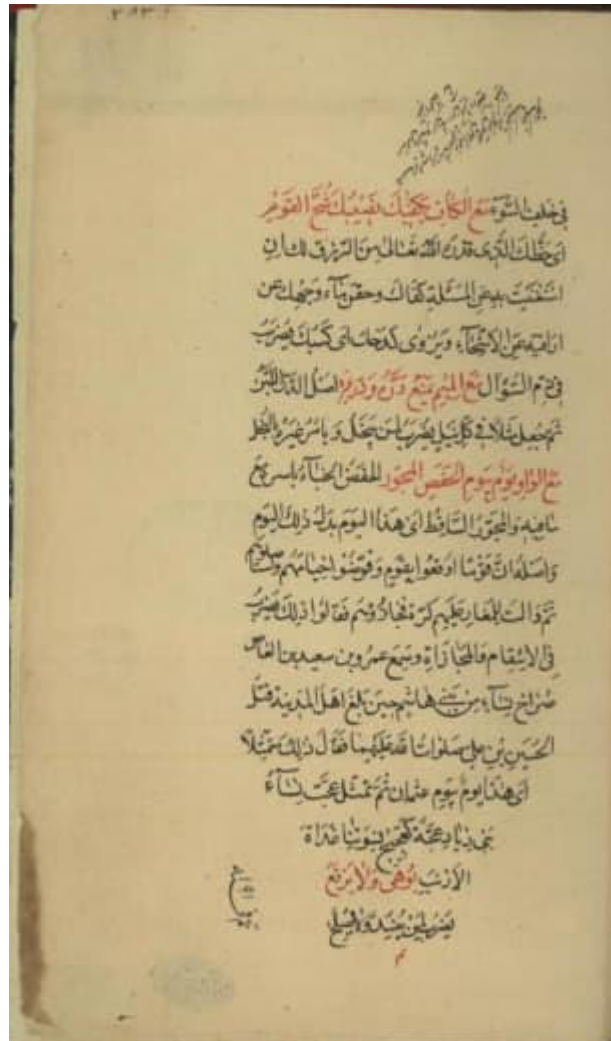 في خلف السوّة مع الكاف يكفيك نصيبك شحّ القوم
اى حظّك الّذى قدره الله تعالى من الرزق لك ان
استغنيت به عن المسئلة كفاك وحقن ماء وجهك عن
اراقته عن الاشحّاء ويروى كدحك اى كسبك يضرب
فى ذم السؤال مع الميم يمنع درّه ودرّ غيره اصل الدر اللبن
ثم جعل مثلا فى كل نيل يضرب لمن يبخل ويامر غيره بالبخل
مع الواو يوم بيوم الحفض المجوّر الحفض الخباء باسره مع
ما فيه والمجوّر الساقط اى هذا اليوم بدل ذلك اليوم
واصله ان قوما اوقعوا بقوم وقوضوا خيامهم
ثم دالت للمغار عليهم كرة فجازوهم فقالوا ذلك يضرب
فى الانتقام والمجازاة وسمع عمرو بن سعيد بن العاص
صراخ نساء من بنى هاشم حين بلغ اهل المدينة قتل
الحسين بن على صلوات الله عليهما فقال ذلك متمثلا
اى هذا يوم بيوم عثمان ثم تمثل عجت نساء
بنى زياد عجّة كعجيج نسوتنا غداة
الارنب يوهى ولا يرقع
يضرب لمن يفسد ولا يصلح
م